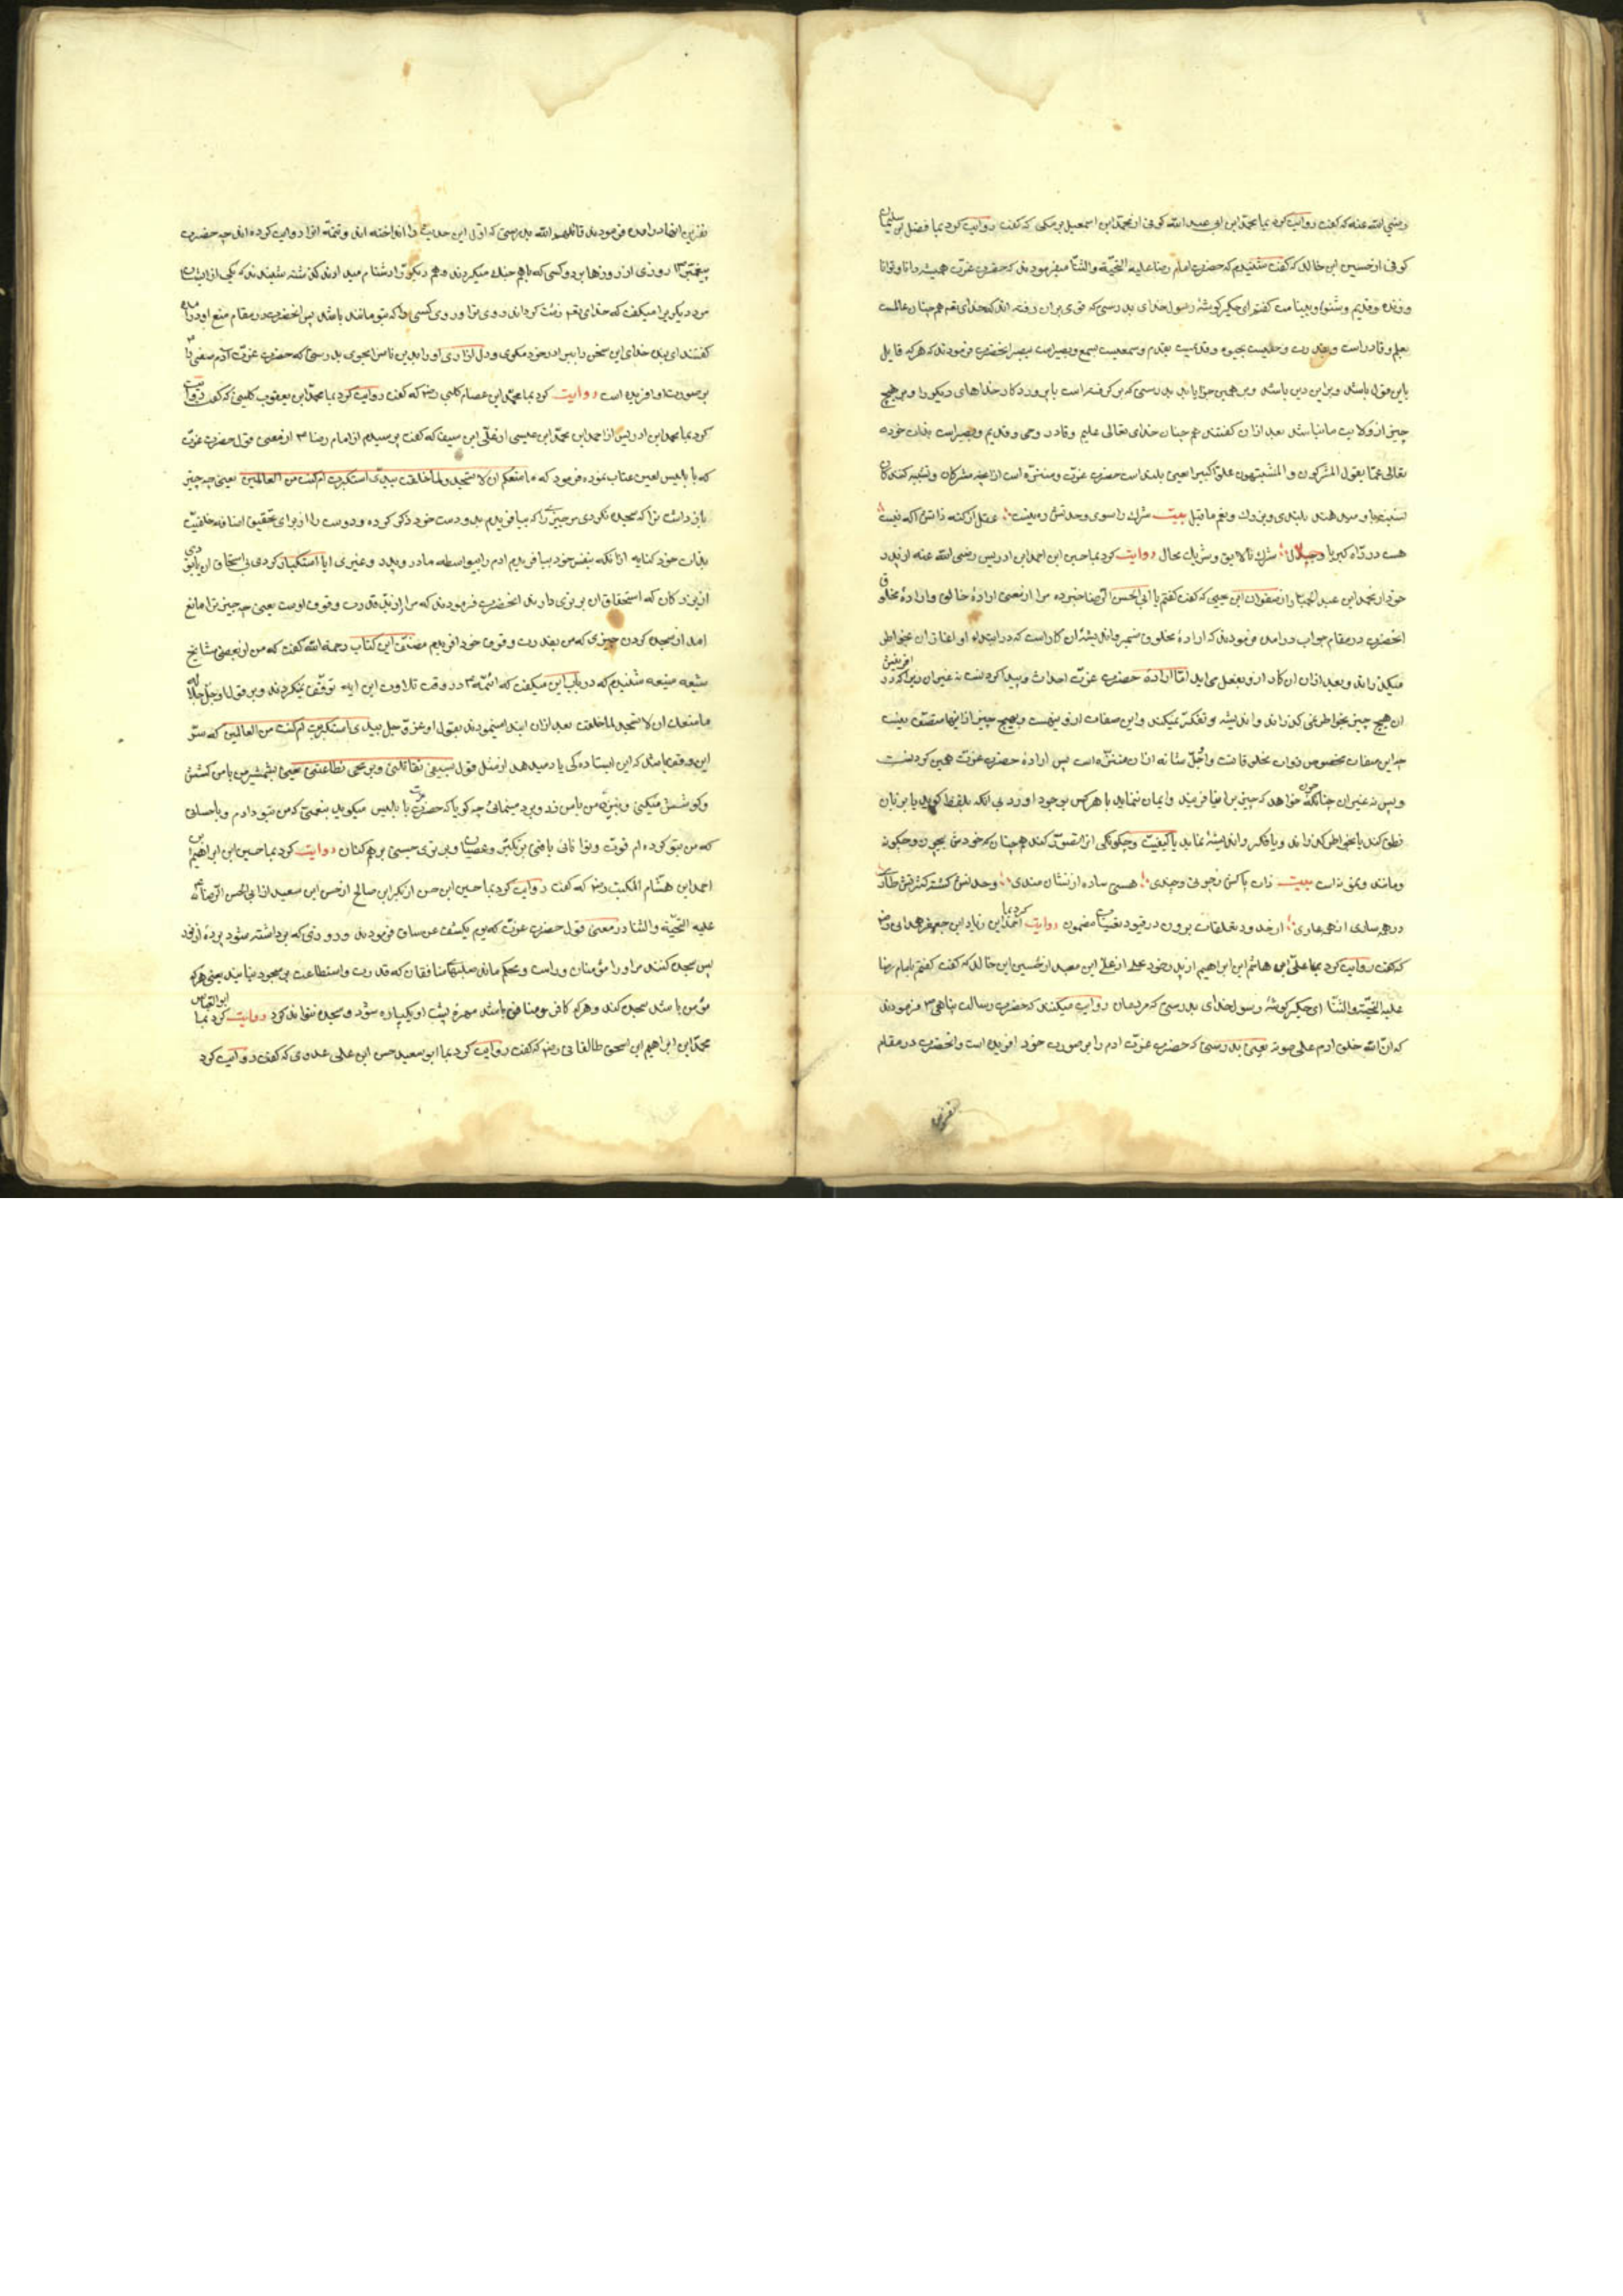 رضی الله عنه که گفت روایت کرد بما محمد ابن ابی عبد الله کوفی از محمد ابن اسمعیل برمکی که گفت روایت کرد بما فضل ابن سلیمان
کوفی از حسین ابن خالد که گفت شنیدم که حضرت امام رضا علیه التحیّة والثنا میفرمودند که حضرت عزّت همیشه دانا و توانا
و زنده و قدیم و شنوا و بینا ست گفتم ای جگر گوشۀ رسول خدای بدرستی که قومی بران رفته اند که خدای تعم همچنان عالمست
بعلم و قادر است و بقدرت و حلیست بحیوة و قدیمست بقدم و سمعیست بسمع و بصیراست ببصر انحضرت فرمودند که هر که قایل
باین قول باشد و براین دین باشد و برهمین جزا یابد بدرستی که بر گرفته است با پروردکار خداهای دیکر را و برهیچ
چیز از ولایت ما نباشد بعد ازان گفتند هم چنان خدای تعالی علیم و قادر و حی و قدیم و بصیراست بذات خود
تعالی عمّا یقول المشرکون و المشبّهون علوّا کبیرا یعنی بلند است حضرت عزّت و منزّه است ازانچه مشرکان و تشبیه کنندکان
بلندی و بزرك و نعم ماقیل بیت شرك را سوی وحدتش ره نیست عقل از کنه ذاتش اکه نیست
هست در راه کبریا و جلال شرك نالایق و شریك محال روایت کرد بما حسین ابن احمد ابن ادریس رضی الله عنه از پدر
خود از محمد ابن عبد الجبار از صفوان ابن یحیی که گفت گفتم با ابی الحسن الرّضا خبر ده مرا از معنی ارادۀ خالق و ارادۀ مخلوق
انحضرت در مقام جواب درامده فرمودند که ارادۀ مخلوق ضمیر و اندیشۀ ان کار است که در ابتداء او اتفاق ان بخواطر
میکذراند و بعد ازان ان کار ازو بفعل می اید امّا ارادۀ حضرت عزّت احداث و پیدا کردنست نه غیر ان زیرا که در افرینش
ان هیچ چیز بخواطر نمی کذراند و اندیشه و تفکر نمیکند و این صفات ازو نیست و بهیچ چیز از اینها متصف نیست
چه این صفات مخصوص ذوات مخلوقات و اجلّ شانه ازان منزّه است پس ارادۀ حضرت عزّت همین کردنست
و پس نه غیر ان چنانکه چون خواهد که چیزیرا بیافریند و ایمان نماید یا هرکس بوجود اورد بی انکه بلفظ کوید یا بر زبان
نطق کند یا بخواطر کذراند و یا فکر و اندیشه نماید یا کیفیت و چکونکی انرا تصوّر کند همچنانکه خودش بیچون و چکونه
و مانند و نمونه است بیت ذات پاکش ز چونی و چندی هستی ساده از نشان مندی وحدتش کشته کثرتش طاری
در همه ساری از همه عاری از حدود تعلقات برون در قیود تعینات مضمون روایت کرد بما احمد ابن زیاد ابن جعفر همدانی رض
که گفت روایت کرد بما علی ابن هاشم ابن ابراهیم از پدر خود علی از علی ابن معبد از حسین ابن خالد که گفت گفتم بامام رضا
علیه التحیّة والثنا ای جگر گوشۀ رسول خدای بدرستی که مردمان روایت میکنند که حضرت رسالت پناهی ۳ فرمودند
که ان الله خلق ادم علی صورته یعنی بدرستی که حضرت عزّت ادم را بر صورت خود افریده است و انحضرت در مقام
نفرین انها درامده فرمودند قاتلهم الله بدرستی که اوّل این حدیث را انداخته اند و تتمّه انرا روایت کرده اند چه حضرت
پیغمبر ۳ روزی از روزها بر دو کسی که باهم جنك میکردند و هم دیکر را دشنام میدادند کذشته شنیدند که یکی از ایشان
مر دیکریرا میکفت که خدای تعم زشت کرداند روی ترا و روی کسی را که بتو مانند باشد پس انحضرت در مقام منع او درامده
گفتند ای بنده خدای این سخن را ببرادر خود مکوی و دل ازاری او را بدین ناسزا مجوی بدرستی که حضرت عزّت آدم صفی را
بر صورت او افریده است روایت کرد بما محمد ابن عصام کلینی رض که گفت روایت کرد بما محمد ابن یعقوب کلینی که گفت روایت
کرد بما احمد ابن ادریس از احمد ابن محمد ابن عیسی از علی ابن سیف که گفت پرسیدم از امام رضا ۳ از معنی قول حضرت عزّت
که با ابلیس لعین عتاب نموده فرمود که ما منعکم ان لا تسجد لما خلقت بیدیّ استکبرت ام کنت من العالمین یعنی چه چیز
باز داشت ترا که سجده نکردی مر چیزی را که بیافریدم بدو دست خود ذکر کرده و دوست را از برای تحقیق اضافه خلقیّت
بذات خود کنایه ازانکه بنفس خود بیافریدم ادم را بیواسطه مادر و پدر و غیری ایا استکبار کردی بی استحقاق ان یا بودی
از بزرکان که استحقاق ان برتری دارند انحضرت فرمودند که مراد از ید قدرت و قوت اوست یعنی چه چیز ترا مانع
امد از سجده کردن چیزی که من بقدرت و قوت خود افریدم مصنّف این کتاب رحمة الله گفت که من از بعضی مشایخ
شیعه منیعه شنیدم که در باب این میکفت که ائمّه ۳ در وقت تلاوت این ایه توقّف میکردند و بر قول او جلّ جلاله
ما منعك ان لا تسجد لما خلقت بعد ازان ابتدا مینمودند بقول او عزّ و جل بیدی استکبرت ام کنت من العالمین که سرّ
این وقف باشد که این ایستادکی یاد میدهد از مثل قول بسیفی تقاتلنی و برمحی تطاعننی یعنی بشمشیر من با من کشش
و کوشش میکنی و بنیزه من با من زد و برد مینمائی چه کویا که حضرت عزت با ابلیس میکوید بنعمتی که من بتو دادم و باحسانی
که من بتو کرده ام قوت و توانائی یافتی بر تکبّر و عصیان و برتری جستی بر همکنان روایت کرد بما حسین ابن ابراهیم ابن
احمد ابن هشام المکتب رض که گفت روایت کرد بما حسین ابن حسن از بکر ابن صالح از حسن ابن سعید از ابی الحسن الرّضا ع
علیه التحیّة والثنا در معنی قول حضرت عزّت که یوم یکشف عن ساق فرمودند و روزی که برداشته شود پردۀ از نور
پس سجده کنند مر او را مؤمنان و راست و محکم ماند صلبهای منافقان که قدرت و استطاعت بر سجود نیابند یعنی هرکه
مؤمن باشد سجده کند و هرکه کافر و منافق باشد مهرۀ پشت او یکپاره شود و سجده نتواند کرد روایت کرد بما ابو العباس
محمد ابن ابراهیم ابن اسحق طالقانی رض که گفت روایت کرد بما ابو سعید حسن ابن علی عدوی که گفت روایت کرد